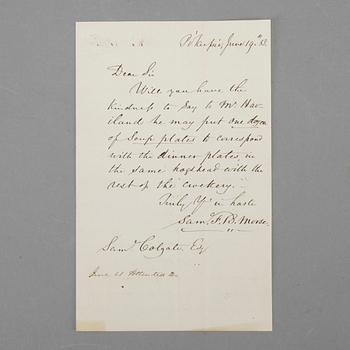 Po'keepsie, June 19th 53.
Dear Sir
Will you have the
kindness to say to Mr Hav-
iland he may put one dozen
of Soup plates to correspond
with the dinner plates, in
the same hogshead with the
rest of the crockery.
Truly Yrs in haste
Saml. F. B. Morse.
Saml. Colgate, Esq
June 21 Attended to